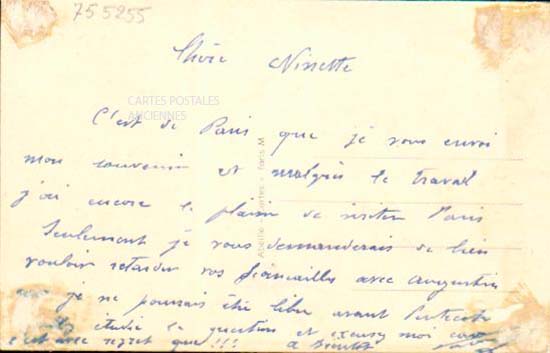 755255
Chère Ninette
CARTES POSTALES
ANCIENNES
C'est de Paris que je vous envoi
mon souvenir et malgrès le travail
j'ai encore le plaisir de visiter Paris
Seulement je vous demanderais de bien
vouloir retarder vos fiancailles avec Augustin
je ne pourrais être libre avant Pentecote
étudié la question et excusez moi car
c'est avec regret que !!! a bientôt
Abeille-Cartes - Paris